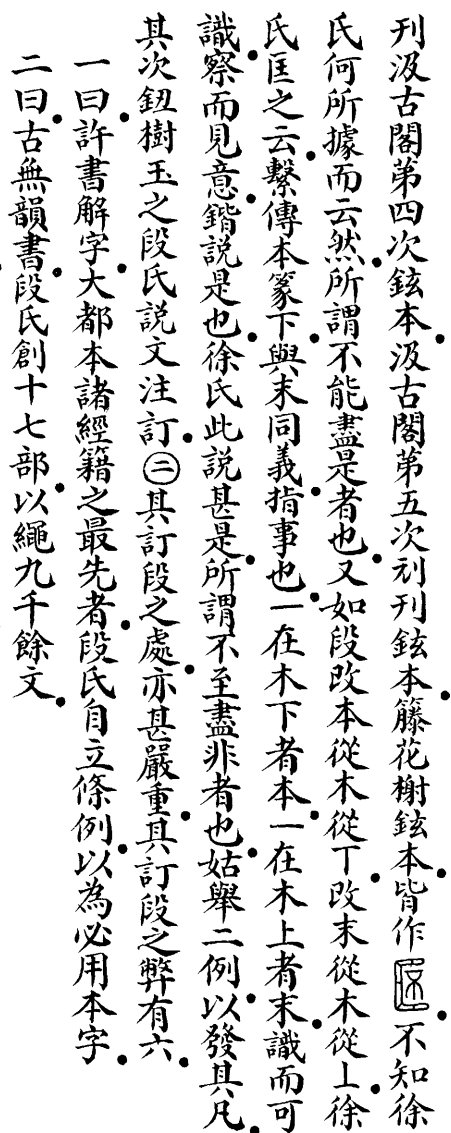 刊汲古閣第四次鉉本．汲古閣第五次刓刊鉉本．籐花榭鉉本．皆作．不知徐
氏何所據而云然．所謂不能盡是者也．又如段改本從木從丅．改末從木從丄．徐
氏匡之云．繫傳本篆下．與末同義．指事也．一在木下者本．一在木上者末．識而可
識．察而見意．鍇說是也．徐氏此說甚是．所謂不至盡非者也．姑舉二例．以發其凡．
其次鈕樹玉之段氏說文注訂．㊁其訂段之處．亦甚嚴重．其訂段之弊有六．
一曰．許書解字．大都本諸經籍之最先者．段氏自立條例．以為必用本字．
二曰．古無韻書．段氏創十七部．以繩九千餘文．